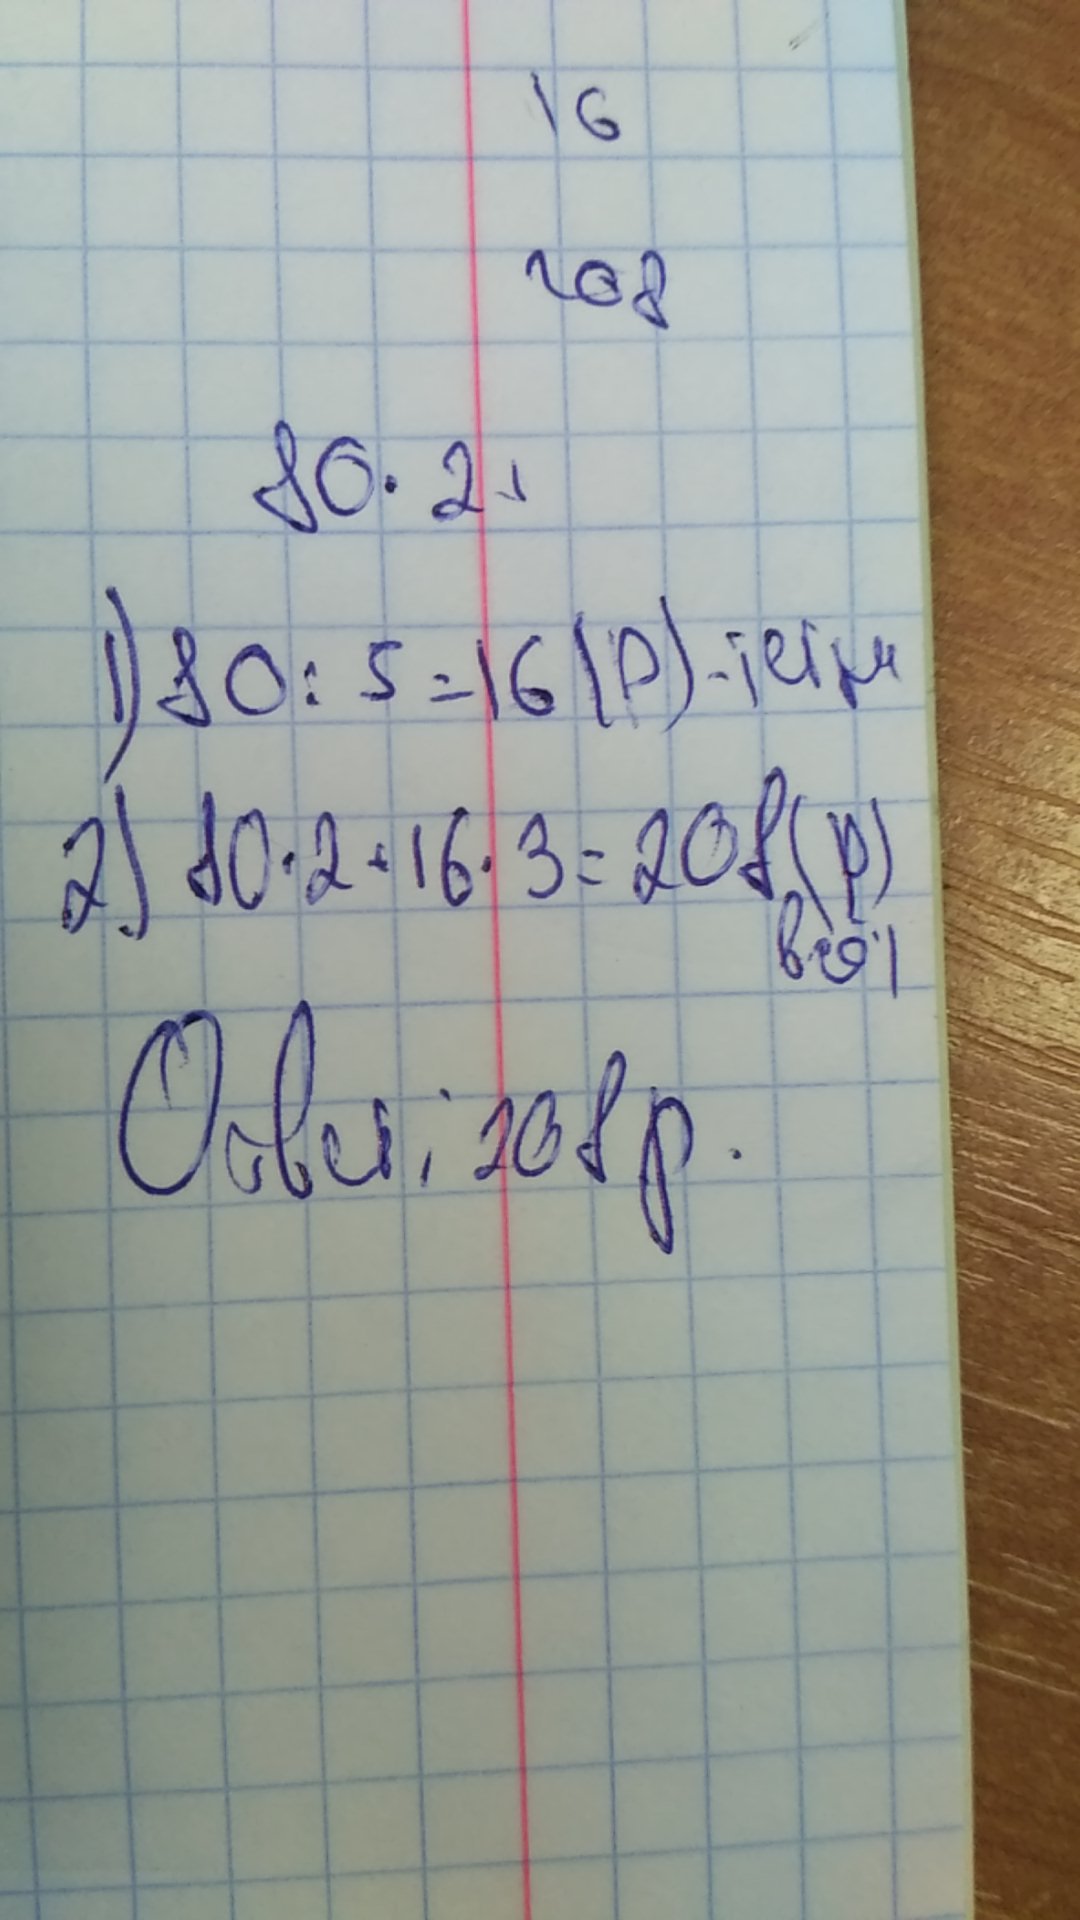 16
208
80·2+
1) 80:5=16(р)-
2) 80·2+16·3=208(р)
всего
Ответ: 208 р.